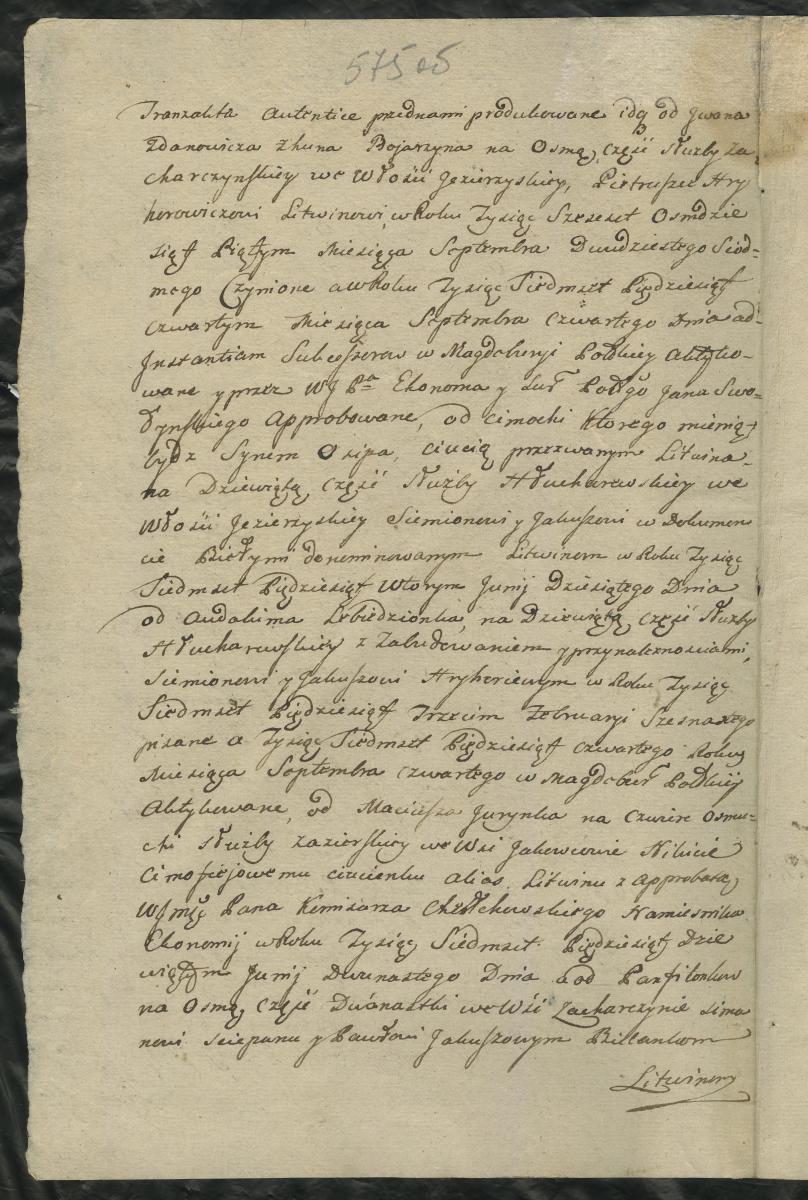 575 об
Tranzakta autentice przednami produkowane idą od Jwana
Zdanowicza Zhuna Bojarzyna na Osmą część Służby Za
charczynskiey we Włości Jezierzyskiey, Pietruszce Hry
horowiczowi Litwinowi, w Roku Tysiąc Szescset Osmdzie
siąt Piątym Miesiąca Septembra Dwudziestego Siod-
mego Czynione a w Roku Tysiąc Siedmset Pięćdziesiąt
czwartym Miesiąca Septembra czwartego Dnia ad
Jnstantiam Sukcessorow w Magdeburyi Połckiey Aktyko-
wane y przez WJ Pa Ekonoma y Jana Swo-
łynskiego Approbowane, od Cimochi Ktorego mienią
bydz Synem Osipa, Ciucią przezwanym Litwina
na Dziewiątą część Służby Hłucharewskiey we
Włości Jezierzyskiey Siemionowi y Jakuszowi w Dokumen
cie Biełymi denominowanym Litwinom w Roku Tysiąc
Siedmset Pięćdziesiąt Wtorym Junij Dziesiątego Dnia
od Audakima Lebiedzionka, na Dziewiątą część Służby
Hłucharewskiey z Zabudowaniem y przynależnościami,
Siemionowi y Jakuszowi Hryhoriewym w Roku Tysiąc
Siedmset Pięćdziesiąt Trzecim Februaryi Szesnastego
pisane a Tysiąc Siedmset Pięćdziesiąt czwartego Roku
Miesiąca Septembra czwartego w Magdebur Połckiey
Aktykowane, od Macieja Jurynka na czwierc Osmu-
chi Służby Zazierskiey we Wsi Jakowcowie Nikicie
Cimofiejowemu Ciucienku alias Litwinu z Approbatą
WJmsę Pana Komisarza Chełchowskiego Namiesnika
Ekonomij w Roku Tysiąc Siedmset Pięćdziesiąt Dzie
wiątym Junij Dwunastego Dnia a od Panfilonkow
na Osmą część Dwunastki we Wsi Zacharczynie Simo
nowi Sciepanu y Pawłowi Jakuszowym Billankom
Litwinom